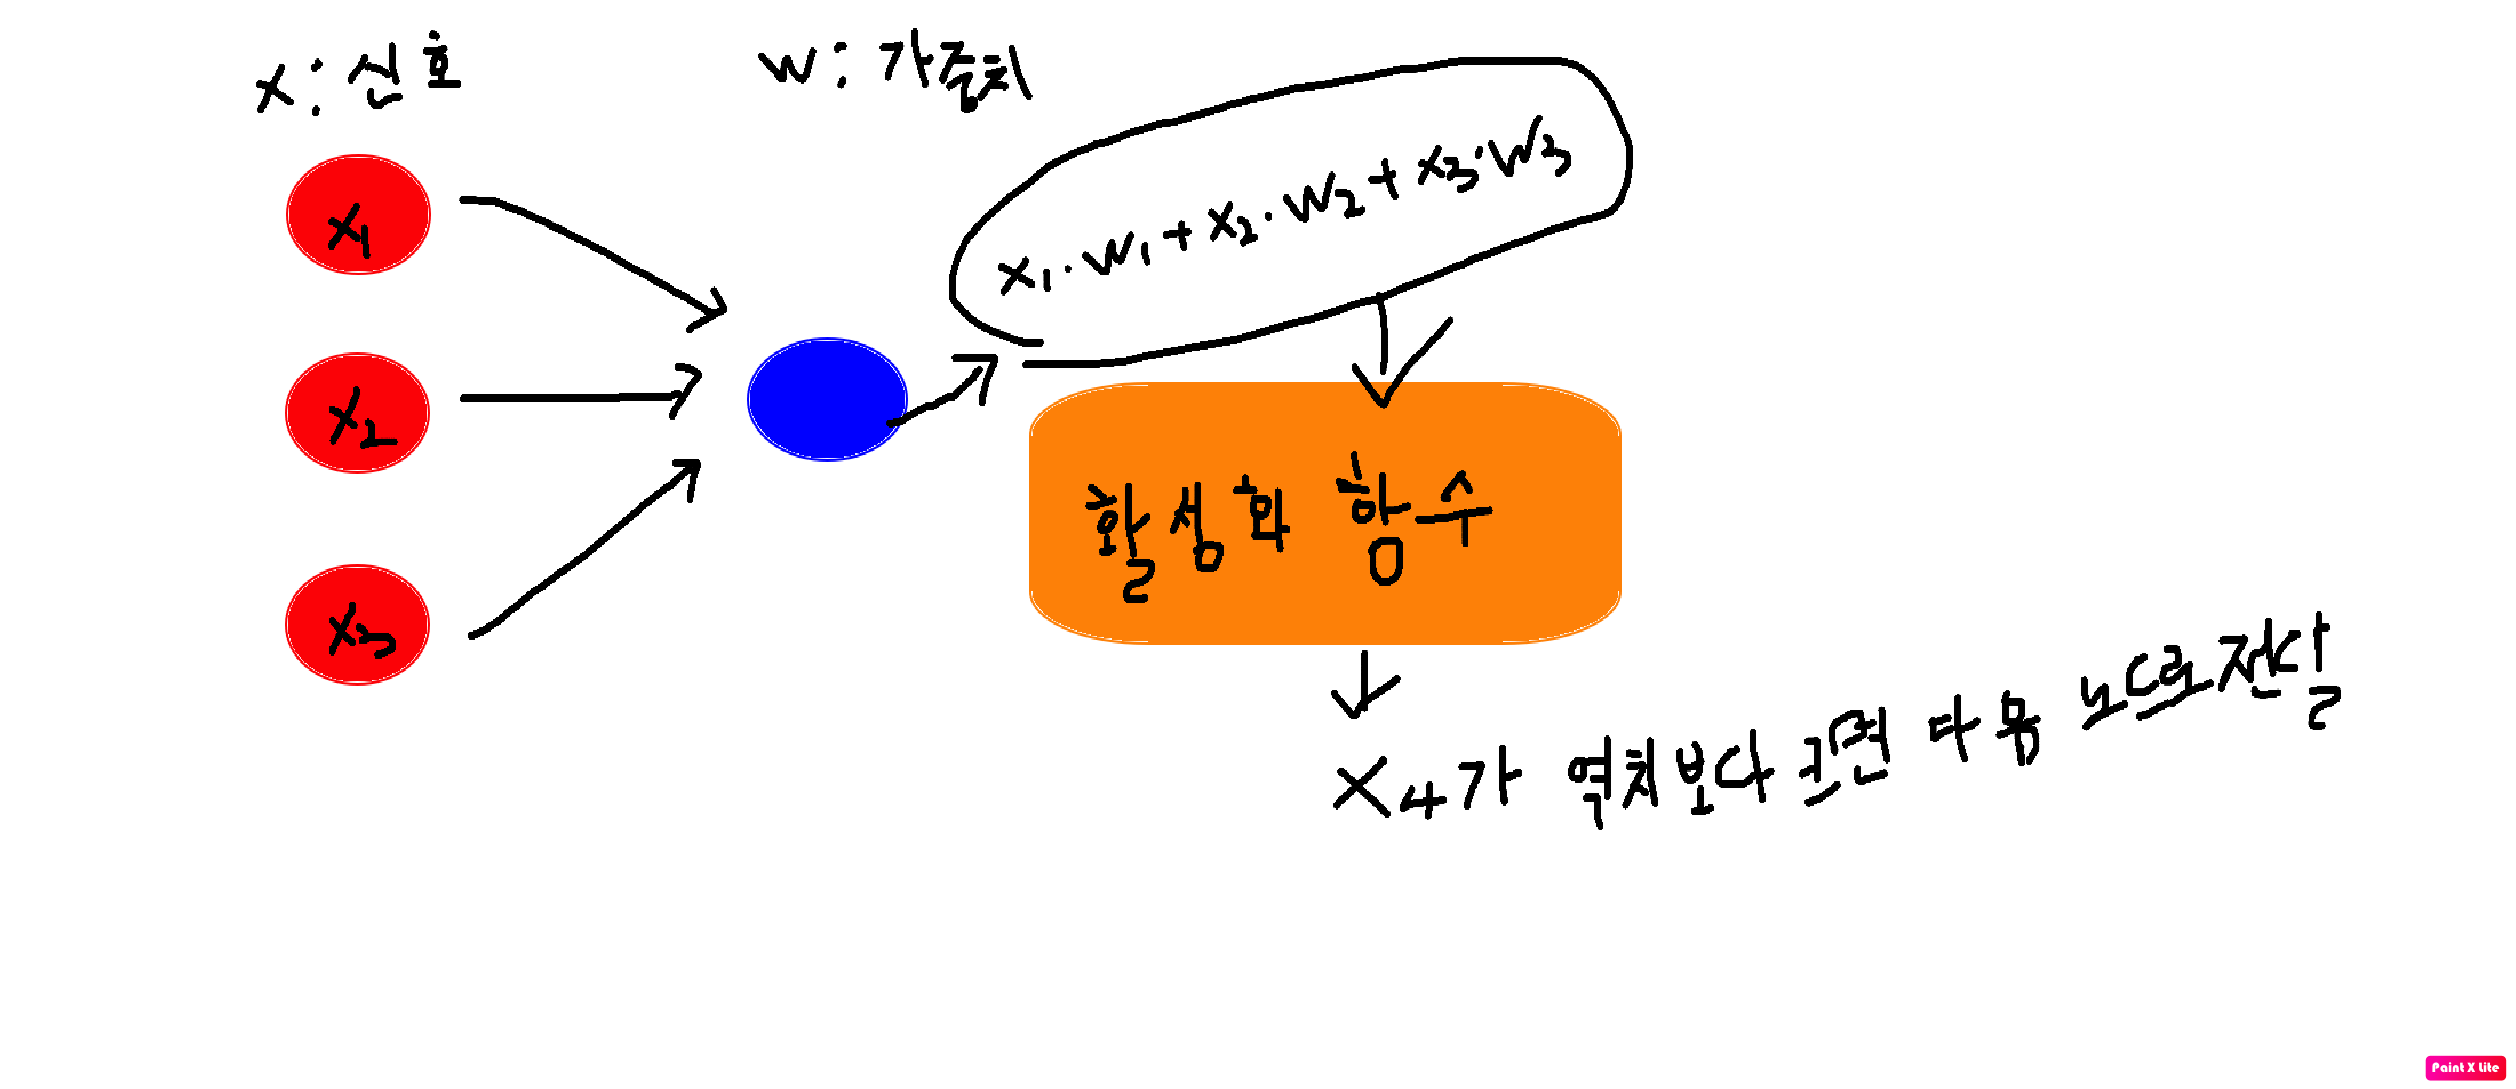 x: 신호
w: 가중치
x₁·w₁+x₂·w₂+x₃·w₃
x₁
x₂
x₃
활성화 함수
x₄가 역치보다 크면 다음 노드로 전달
Paint X Lite